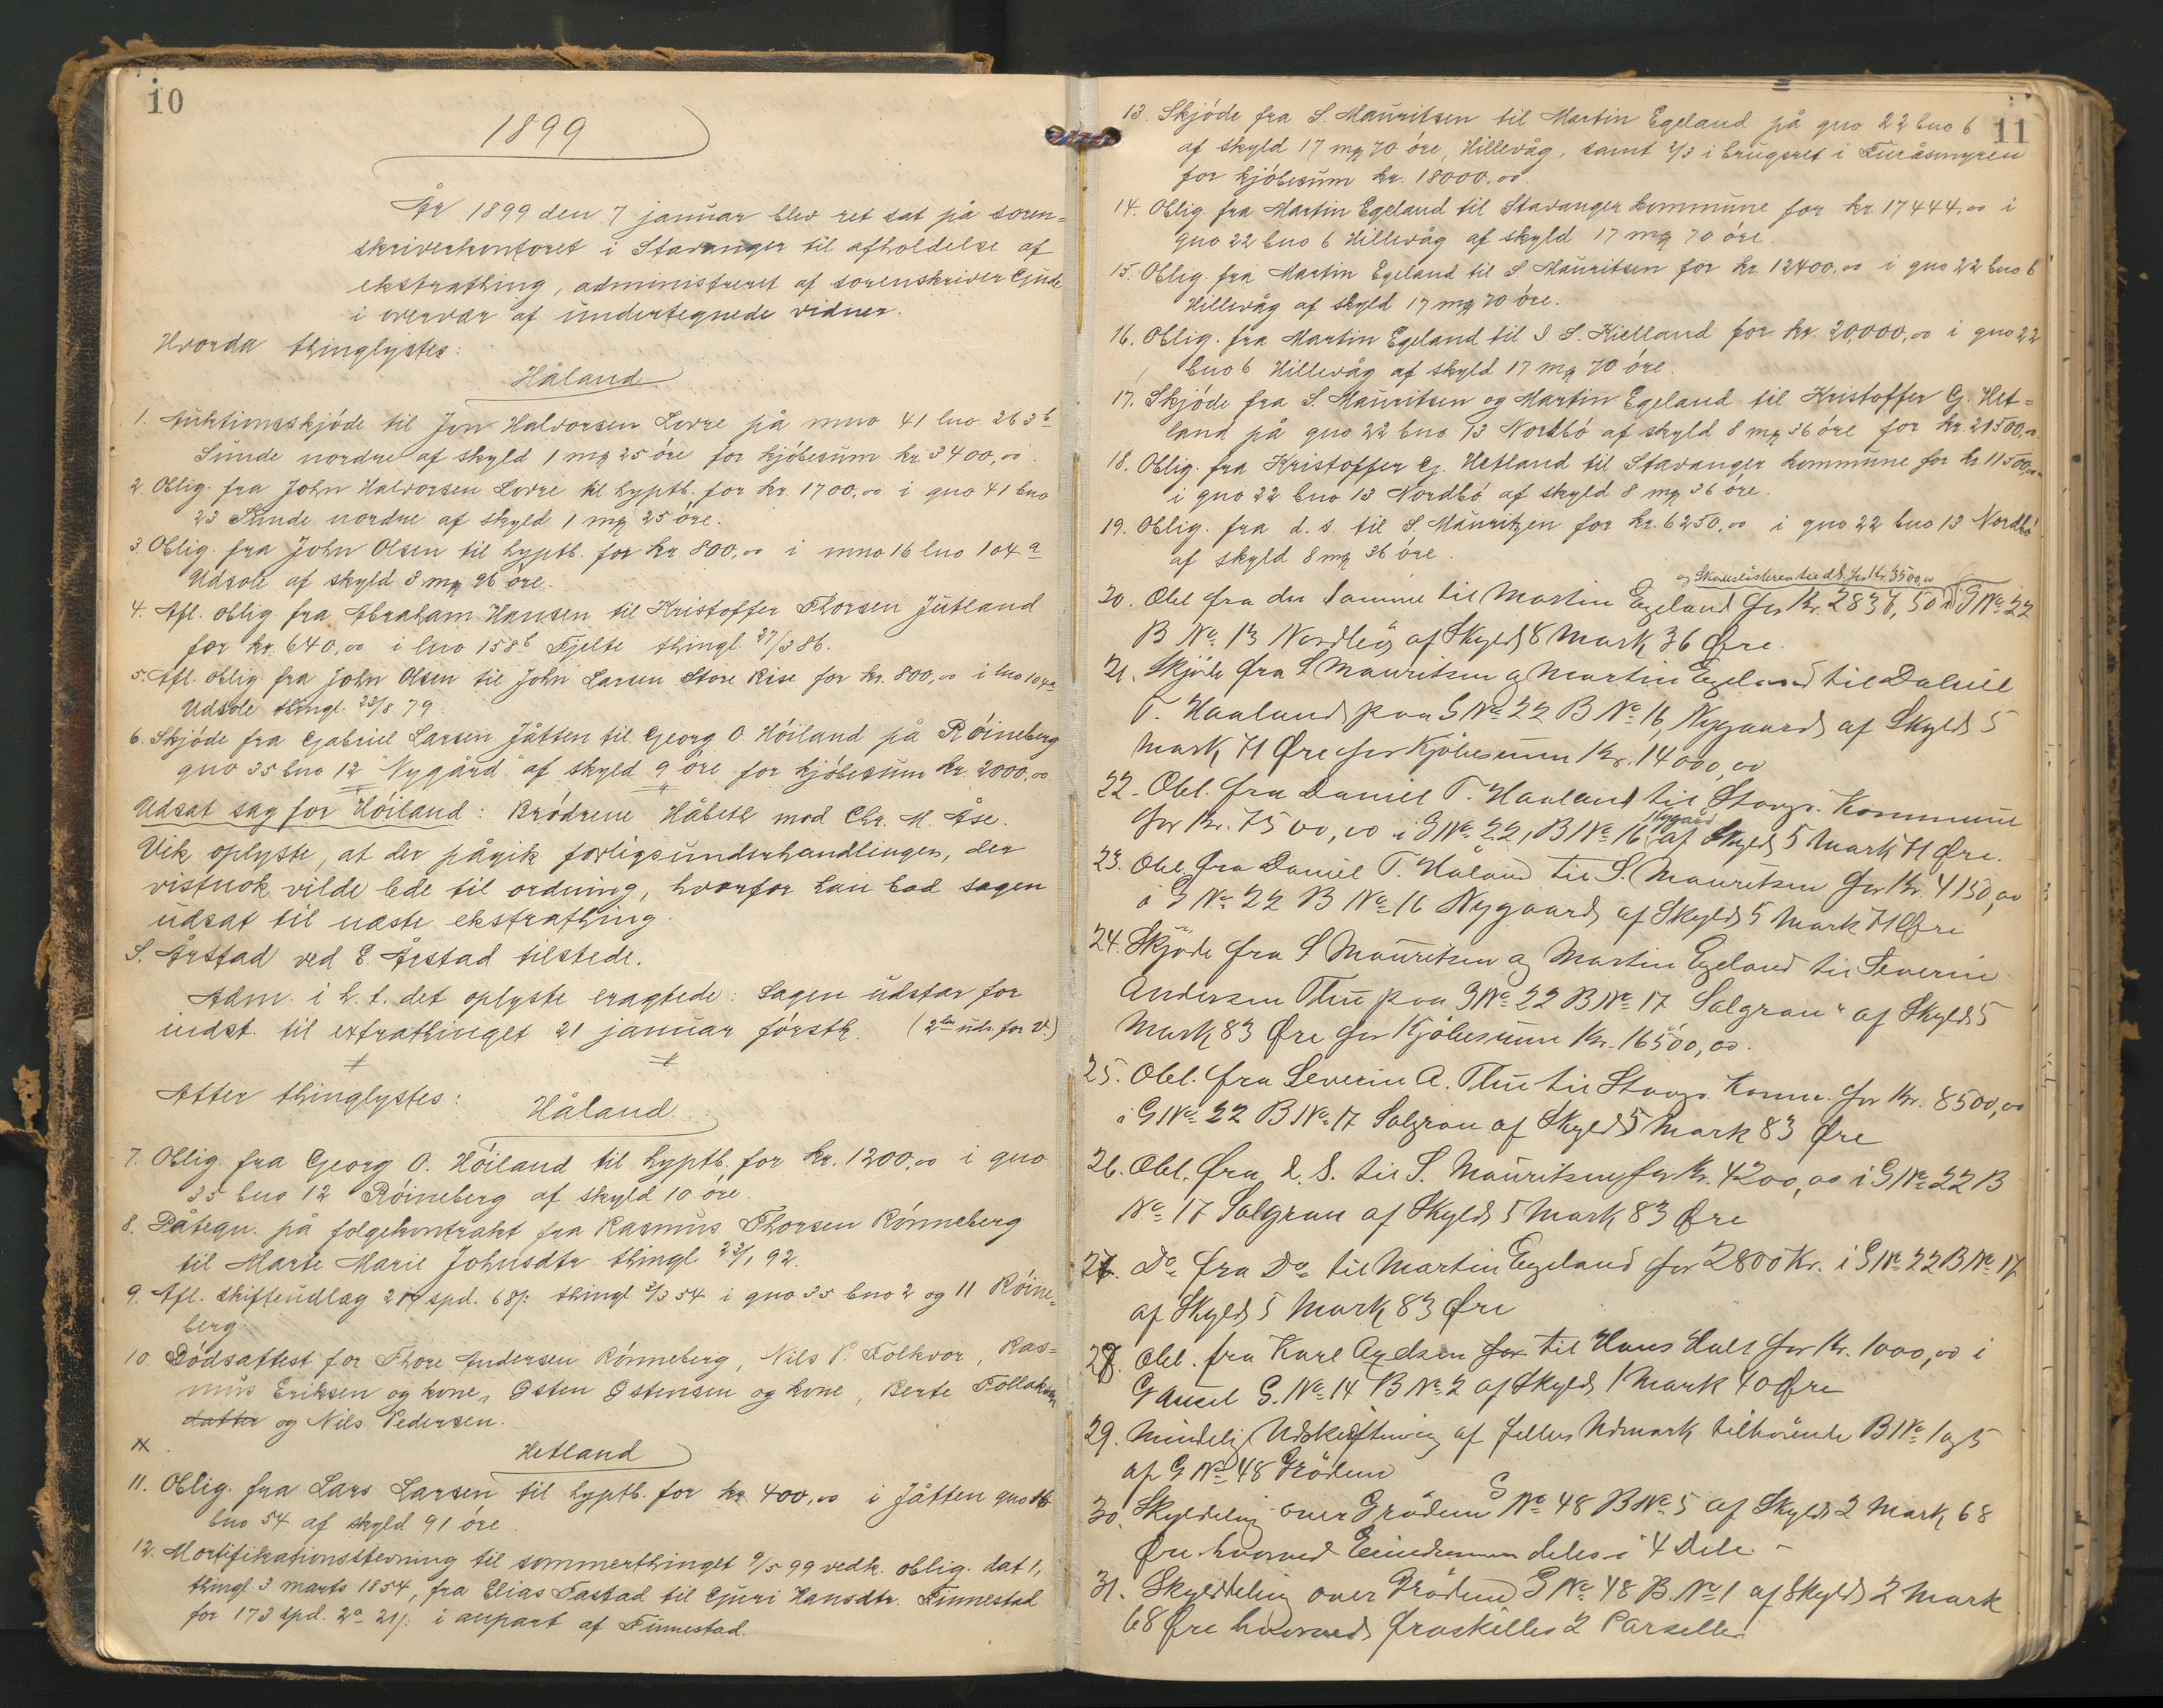 10
1899
År 1899 den 7 januar blev ret sat på soren=
skriverkontoret i Stavanger til afholdelse af
ekstrathing, administreret af sorenskriver Gjude
i overvær af undertegnede vidner.
Hvorda thinglystes:
Håland
1. Auktionsskjöde til Jon Halvorsen Lovre på mno 41 lno 263b
Sunde nordre af skyld 1 mq 25 öre for kjöbesum kr. 3400,00.
2. Oblig. fra John Halvorsen Lovre til hyptb. for kr. 1700,00 i gno 41 bno
23 Sunde nordre af skyld 1 mq 25 öre.
3. Oblig. fra John Olsen til hyptb. for kr. 800,00 i mno 16 lno 104a
Udsole af skyld 3 mq 26 öre.
4. Afl. oblig. fra Abraham Hansen til Kristoffer Thorsen Jutland
for kr. 640,00 i lno 158b Fjelte thingl. 27/3 86.
5. Afl. oblig. fra John Olsen til John Larsen Store Rise for kr. 800,00 i lno 104a
Udsole thingl. 23/8 79.
6. Skjöde fra Gabriel Larsen Jåtten til Georg O. Höiland på Röineberg
gno 35 bno 12 "Nygård" af skyld 9 öre for kjöbesum kr. 2000,00.
Udsat sag for Höiland: Brödrene Håbeth mod Chr. M. Åse.
Vik oplyste, at der pågik forligsunderhandlinger, der
vistnok vilde lede til ordning, hvorfor han bad sagen
udsat til næste ekstrathing.
S. Årstad ved E. Årstad tilstede.
Adm. i h. t. det oplyste eragtede: Sagen udstår for
indst. til extrathinget 21 januar förstk. (2den uds. for V.)
Atter thinglystes:
Håland
7. Oblig. fra Georg O. Höiland til hyptb. for kr. 1200,00 i gno
35 bno 12 Röineberg af skyld 10 öre.
8. Påtegn. på folgekontrakt fra Rasmus Thorsen Rönneberg
til Marte Marie Johnsdtr thingl. 23/1 92.
9. Afl. skifteudlag 219 spd. 68/: thingl 3/3 54 i gno 35 bno 2 og 11 Röine=
berg.
10. Dödsattest for Thore Andersen Rönneberg, Nils P. Folkvor, Ras=
mus Eriksen og kone, Osten Ostensen og kone, Berte Tollaks
datter og Nils Pedersen.
Hetland
11. Oblig. fra Lars Larsen til hyptb. for kr. 400,00 i Jåtten gno 16
bno 54 af skyld 91 öre.
12. Mortifikationsstevning til sommerthinget 9/5 99 vedk. oblig. dat 1,
thingl. 3 marts 1854, fra Elias Tastad til Gjuri Hansdtr. Finnestad
for 173 spd. 2a 21/: i anpart af Finnestad.
11
13. Skjöde fra S. Mauritsen til Martin Egeland på gno 22 bno 6
af skyld 17 mq 70 öre, Hillevåg, samt 2/3 i brugsret i Furåsmyren
for kjöbesum kr. 18000,00.
14. Oblig. fra Martin Egeland til Stavanger kommune for kr. 17444,00 i
gno 22 bno 6 Hillevåg af skyld 17 mq 70 öre.
15. Oblig. fra Martin Egeland til S. Mauritsen for kr. 12400,00 i gno 22 bno 6
Hillevåg af skyld 17 mq 70 öre.
16. Oblig. fra Martin Egeland til J. S. Kielland for kr. 20,000,00 i gno 22
bno 6 Hillevåg af skyld 17 mq 70 öre.
17. Skjöde fra S. Mauritsen og Martin Egeland til Kristoffer G. Het=
land på gno 22 bno 13 Nordbö af skyld 8 mq 36 öre for kr. 21500,00.
18. Oblig. fra Kristoffer G. Hetland til Stavanger kommune for kr. 11500,00
i gno 22 bno 13 Nordbö af skyld 8 mq 36 öre.
19. Oblig. fra d. s. til S. Mauritzen for kr. 6250,00 i gno 22 bno 13 Nordbö
af skyld 8 mq 36 öre.
til d.S. for Kr. 3500,00
20. Obl fra den Samme til Martin Egeland for Kr. 2837,50 i G No 22
B No 13 Nordbö af Skyld 8 Mark 36 Øre.
21. Skjöde fra S Mauritsen og Martin Egeland til Daniel
T. Haaland paa G No 22 B No 16, Nygaard af Skyld 5
Mark 71 Øre for Kjöbesum Kr. 14000,00
22. Obl. fra Daniel T. Haaland til Stavgr. Kommune
for Kr. 7500,00 i G No 22, B No 16 Nygård af Skyld 5 Mark 71 Øre.
23. Obl. fra Daniel T. Håland til S. Mauritsen for Kr. 4150,00
i G No 22 B No 16 Nygaard af Skyld 5 Mark 71 Øre
24. Skjöde fra S Mauritsen og Martin Egeland til Severin
Andersen Thu paa G No 22 B No 17 "Solgrau" af Skyld 5
Mark 83 Øre for Kjöbesum Kr. 16500,00.
25. Obl. fra Severin A. Thu til Stavgr. Komm. for Kr. 8500,00
i G No 22 B No 17 Solgrau af Skyld 5 Mark 83 Øre
26. Obl. fra d. S. til S. Mauritsen for Kr. 4200,00 i G No 22 B
No 17 Solgrau af Skyld 5 Mark 83 Øre
27. Do fra Do til Martin Egeland for 2800 Kr. i G No 22 B No 17
af Skyld 5 Mark 83 Øre
28. Obl. fra Karl Axelsen for til Hans Hals for Kr. 1000,00 i
Gausel G. No 14 B No 2 af Skyld 1 Mark 40 Øre
29. Mindelig Udskiftning af fælles Udmark tilhörende B No 1 og 5
af G No 48 Grödem
30. Skylddeling over Grödem G No 48 B No 5 af Skyld 2 Mark 68
Øre hvorved Eiendommen deles i 4 Dele. -
31. Skylddeling over Grödem G No 48 B. No 1 af Skyld 2 Mark
68 Øre hvorved fraskilles 2 Parseller